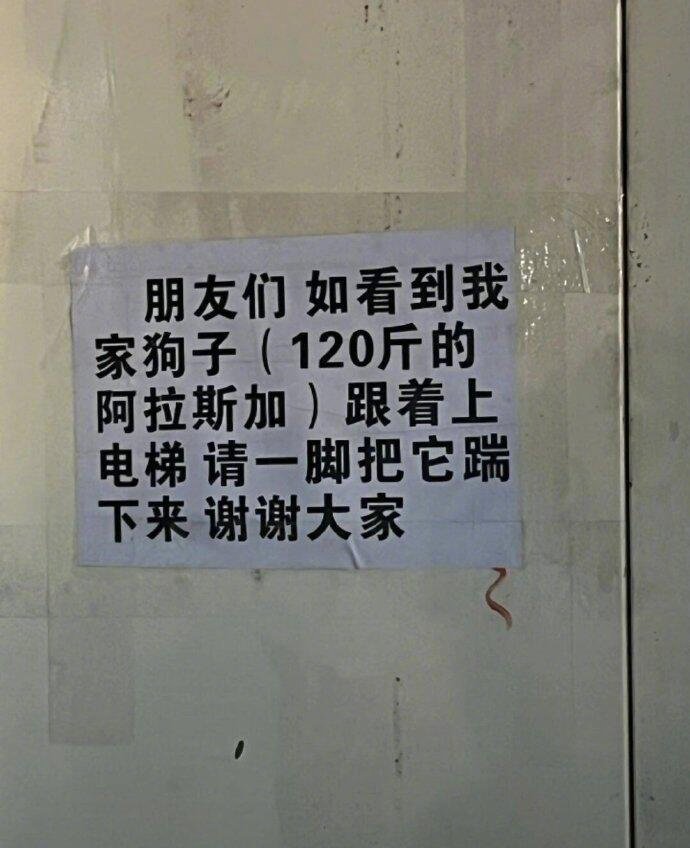 朋友们 如看到我
家狗子（120斤的
阿拉斯加）跟着上
电梯 请一脚把它踹
下来 谢谢大家